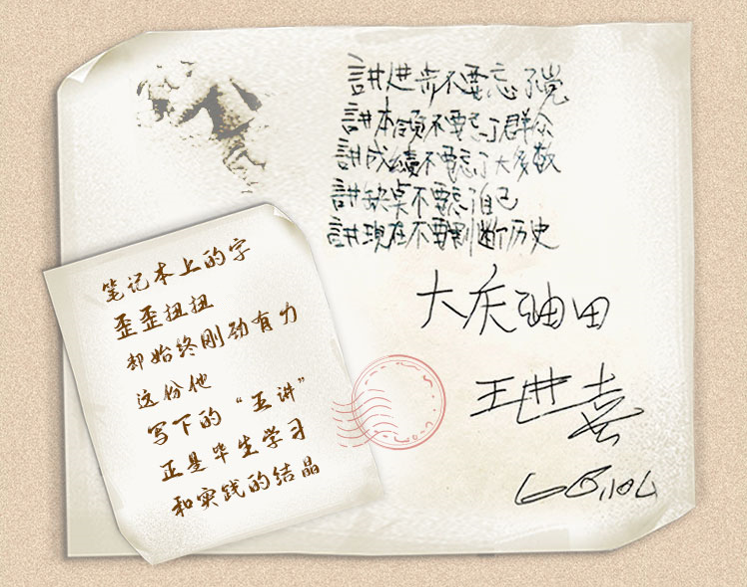 讲进步不要忘了党
讲本领不要忘了群众
讲成绩不要忘了大多数
讲缺点不要忘了自己
讲现在不要割断历史
大庆油田
王进喜
66.10.4
笔记本上的字
歪歪扭扭
却始终刚劲有力
这份他
写下的“五讲”
正是毕生学习
和实践的结晶